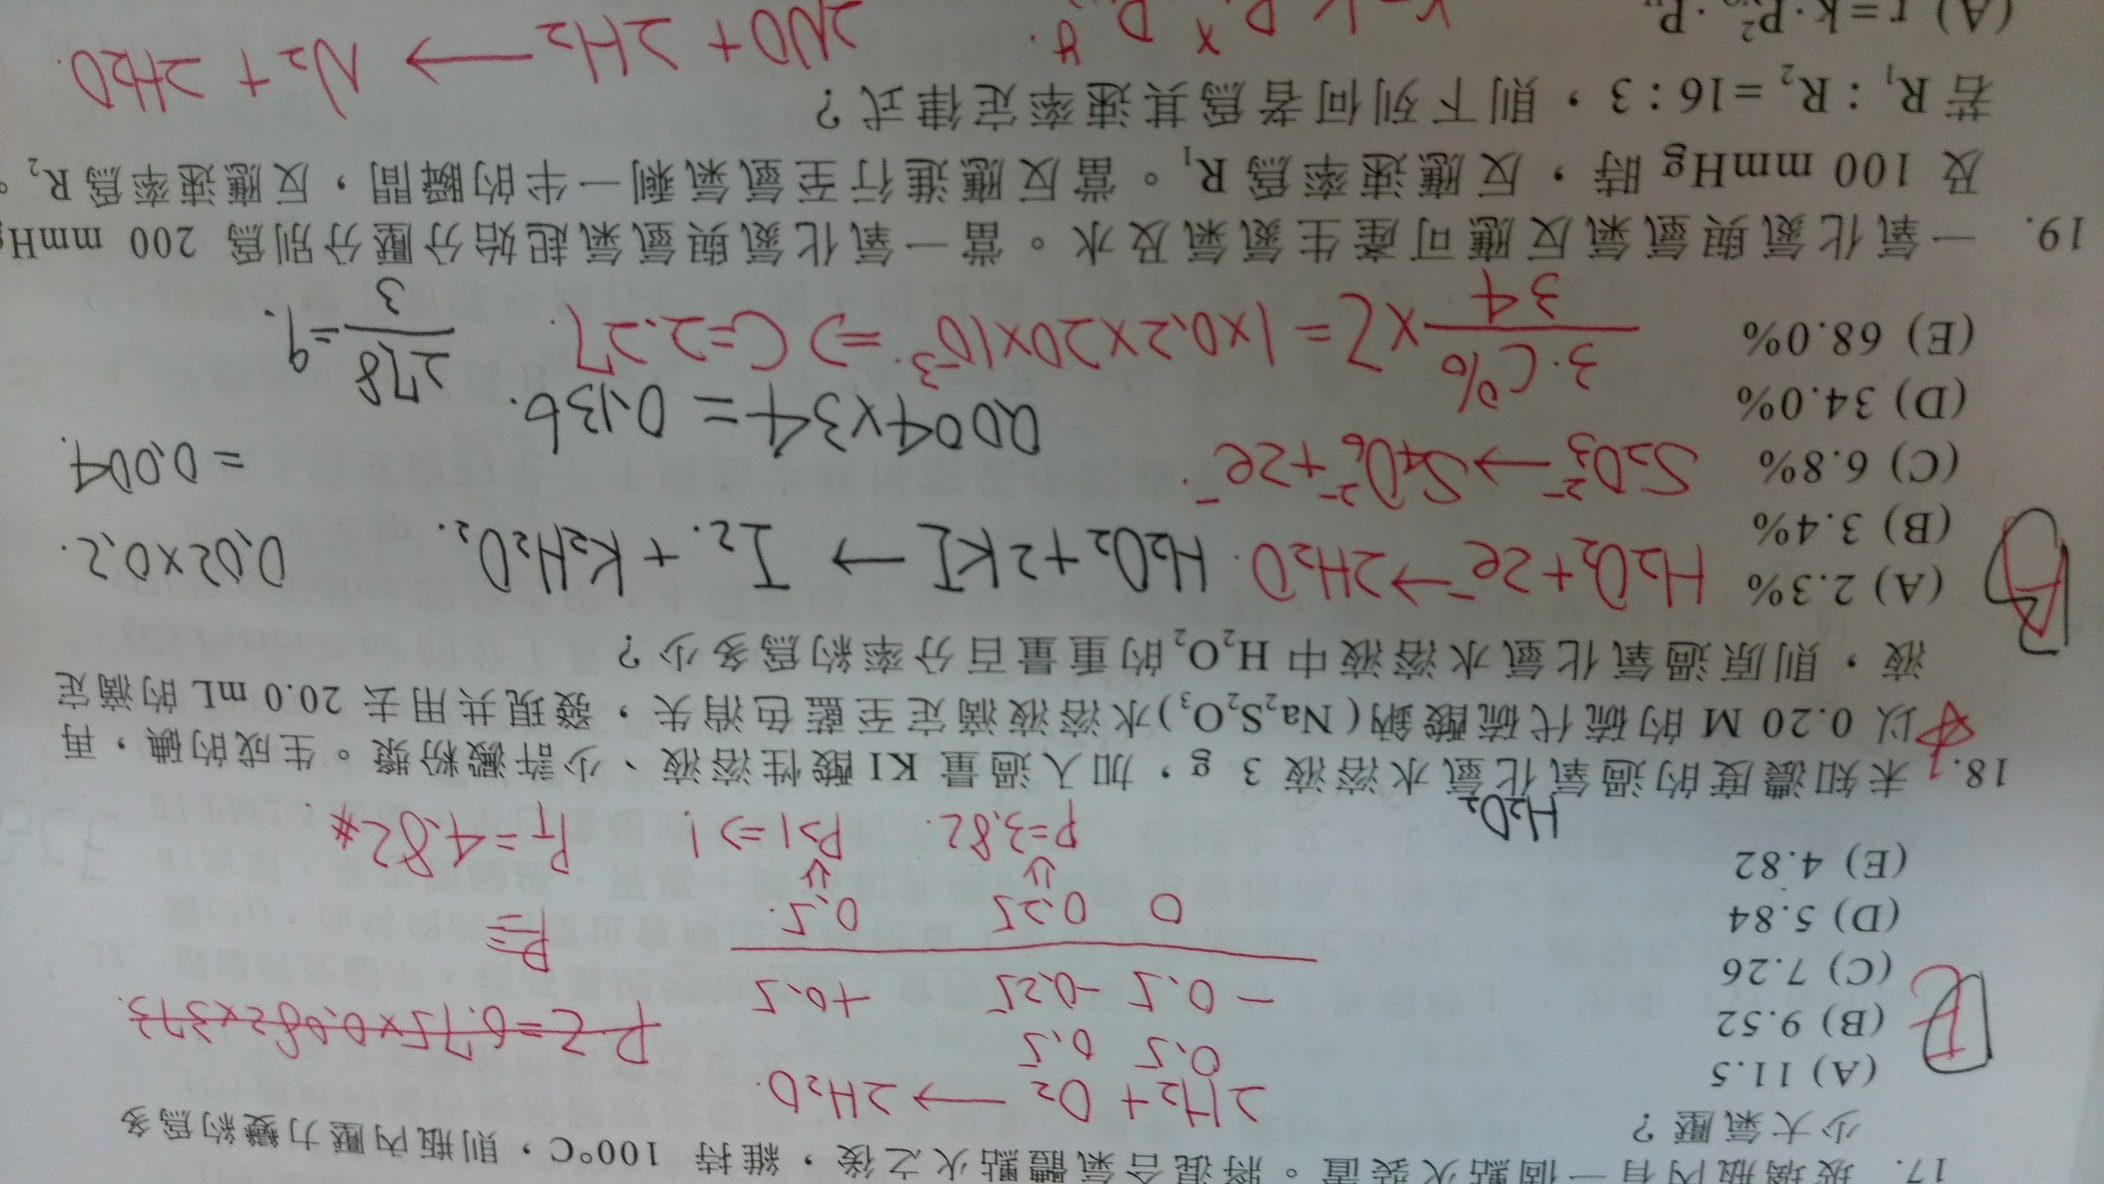 17. 玻璃瓶內有一個點火裝置。將混合氣體點火之後，維持 100°C，則瓶內壓力變約為多
少大氣壓？
(A) 11.5
(B) 9.52
(C) 7.26
(D) 5.84
(E) 4.82
E
2H₂ + O₂ → 2H₂O.
0.5 0.5
-0.5 -0.25 +0.5
0 0.25 0.5.
⇓ ⇓
P=3.82. P>1 ⇒ 1
P_T=4.82#
P=
H₂O₂
18. 未知濃度的過氧化氫水溶液 3 g，加入過量 KI 酸性溶液、少許澱粉漿。生成的碘，再
以 0.20 M 的硫代硫酸鈉(Na₂S₂O₃)水溶液滴定至藍色消失，發現共用去 20.0 mL 的滴定
液，則原過氧化氫水溶液中 H₂O₂的重量百分率約為多少？
(A) 2.3%
(B) 3.4%
(C) 6.8%
(D) 34.0%
(E) 68.0%
H₂O₂+2e⁻→2H₂O.
H₂O₂+2KI → I₂. + K₂H₂O₂.
0.02×0.2.
= 0.004.
S₂O₃²⁻→S₄O₆²⁻+2e⁻.
0.004×34 = 0.136.
3·C%/34 ×2 = 1×0.2×20×10⁻³. ⇒ C=2.27.
27.8/3=9.
19. 一氧化氮與氫氣反應可產生氮氣及水。當一氧化氮與氫氣起始分壓分別為 200 mmHg
及 100 mmHg 時，反應速率為 R₁。當反應進行至氫氣剩一半的瞬間，反應速率為 R₂。
若 R₁：R₂ =16：3，則下列何者為其速率定律式？
2NO + 2H₂ → N₂ + 2H₂O.